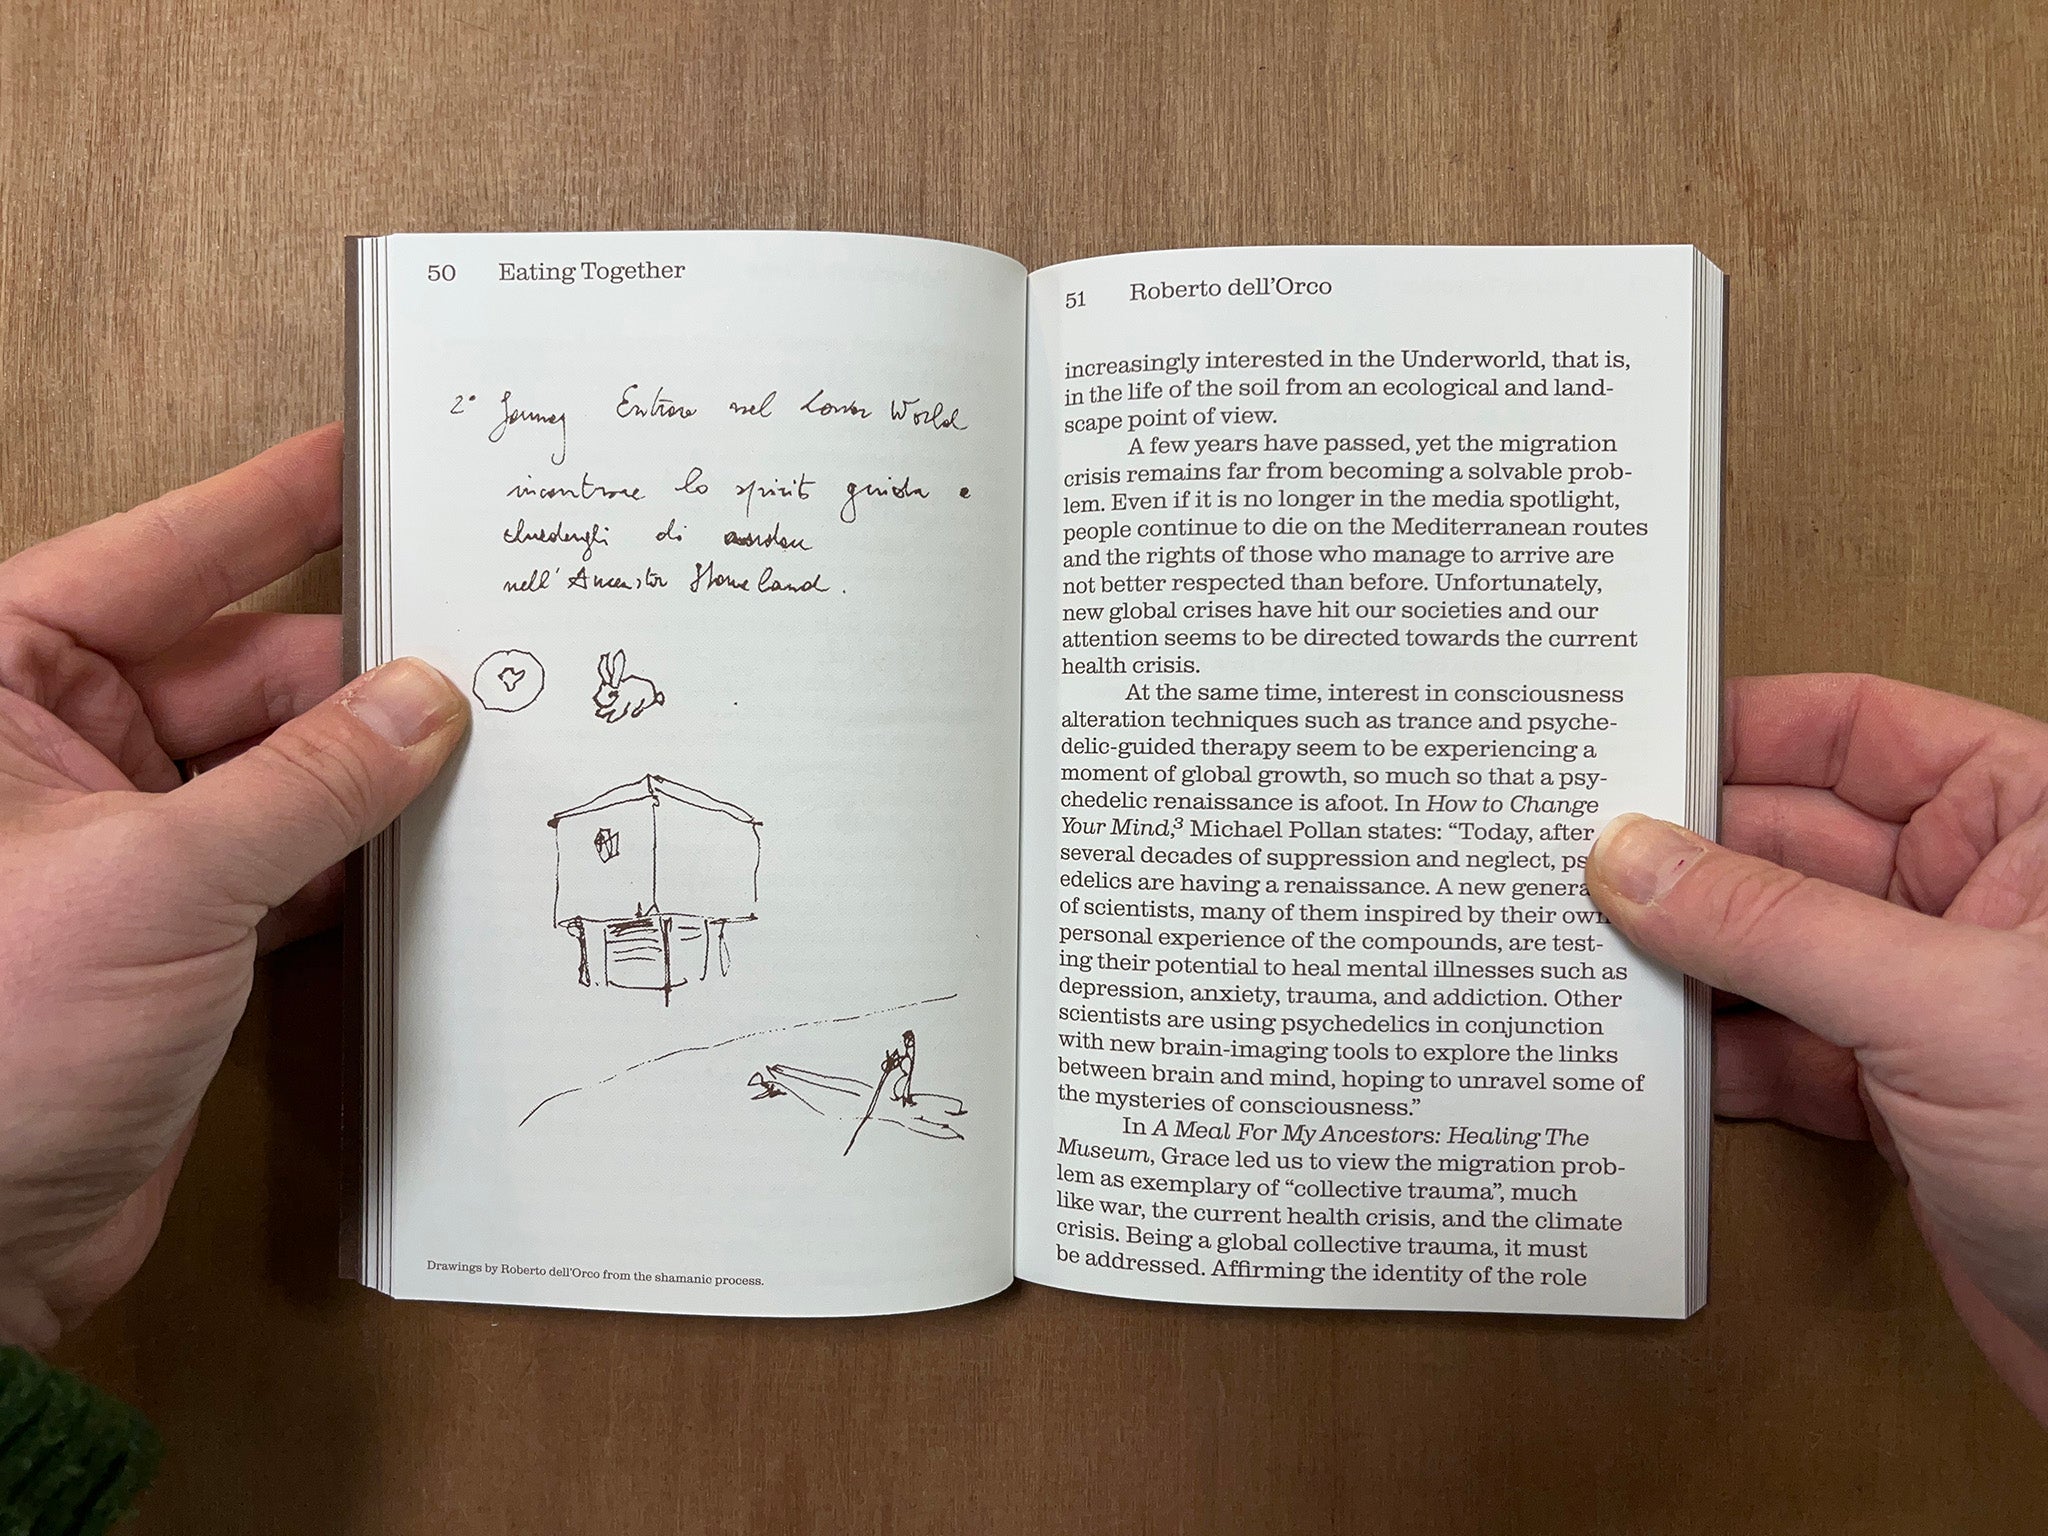 50 Eating Together
2° Journey Entrare nel Lower World
incontrare lo spirito guida e
chiedergli di andare
nell'Ancestor Homeland.
Drawings by Roberto dell'Orco from the shamanic process.
51 Roberto dell'Orco
increasingly interested in the Underworld, that is,
in the life of the soil from an ecological and land-
scape point of view.
A few years have passed, yet the migration
crisis remains far from becoming a solvable prob-
lem. Even if it is no longer in the media spotlight,
people continue to die on the Mediterranean routes
and the rights of those who manage to arrive are
not better respected than before. Unfortunately,
new global crises have hit our societies and our
attention seems to be directed towards the current
health crisis.
At the same time, interest in consciousness
alteration techniques such as trance and psyche-
delic-guided therapy seem to be experiencing a
moment of global growth, so much so that a psy-
chedelic renaissance is afoot. In How to Change
Your Mind,³ Michael Pollan states: “Today, after
several decades of suppression and neglect, ps
edelics are having a renaissance. A new genera
of scientists, many of them inspired by their own
personal experience of the compounds, are test-
ing their potential to heal mental illnesses such as
depression, anxiety, trauma, and addiction. Other
scientists are using psychedelics in conjunction
with new brain-imaging tools to explore the links
between brain and mind, hoping to unravel some of
the mysteries of consciousness.”
In A Meal For My Ancestors: Healing The
Museum, Grace led us to view the migration prob-
lem as exemplary of “collective trauma”, much
like war, the current health crisis, and the climate
crisis. Being a global collective trauma, it must
be addressed. Affirming the identity of the role